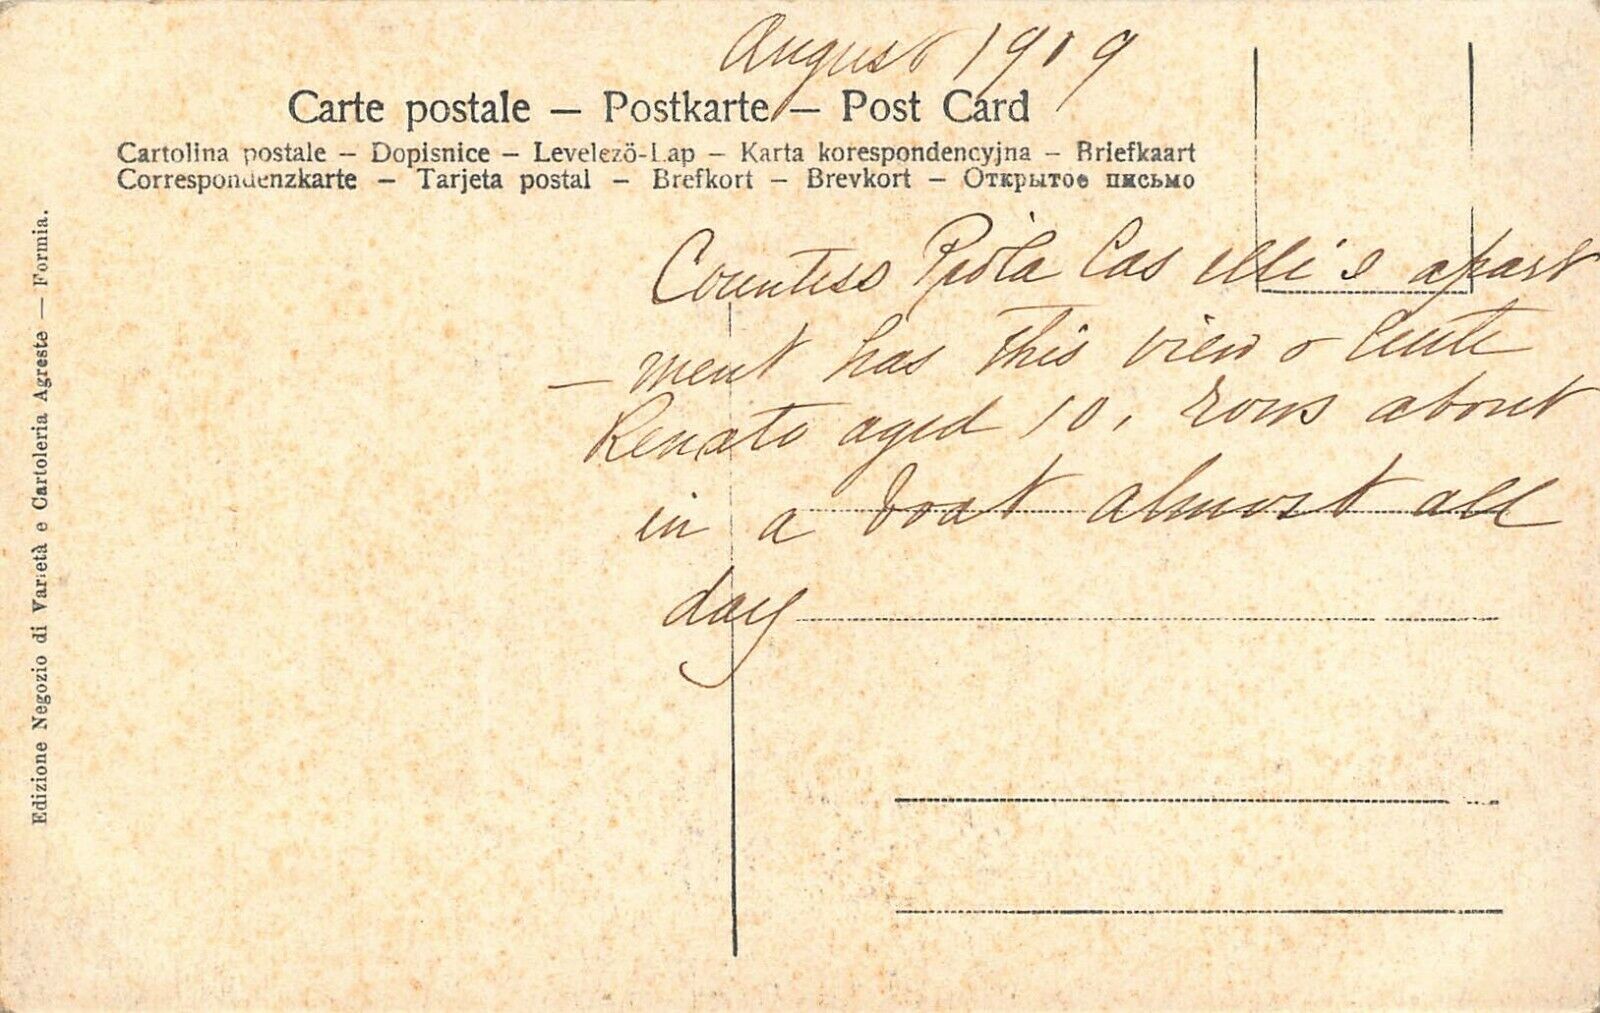 August 1909
Carte postale — Postkarte — Post Card
Cartolina postale – Dopisnice – Levelező-Lap – Karta korespondencyjna – Briefkaart
Correspondenzkarte – Tarjeta postal – Brefkort – Brevkort – Открытое письмо
Countess Piola Caselli's apart
— ment has this view &
Renato aged 10, rows about
in a boat almost all
day
Edizione Negozio di Varietà e Cartoleria Agreste — Formia.